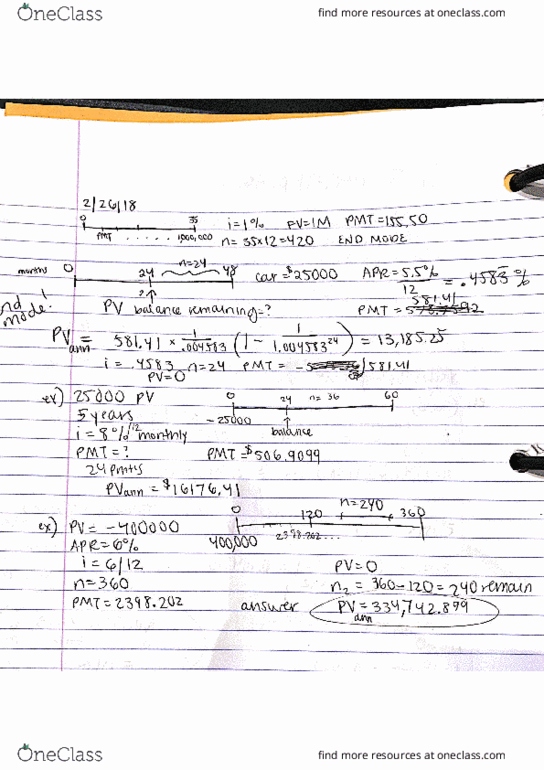 OneClass
find more resources at oneclass.com
2/26/18
0 35
PMT ...... 1,000,000
i=1% PV=1M PMT=155.50
n=35x12=420 END MODE
months 0 24 n=24 48
car=$25000 APR=5.5% / 12 = .4583%
end mode!
PV balance remaining=?
PMT = 581.41
PVann = 581.41 × 1/.004583 (1 - 1/1.004583^24) = 13,185.25
i = .4583 n=24 PMT = - 581.41
PV=0
ex) 25000 PV
0 24 n=36 60
5 years
-25000 balance
i=8%/12 monthly
PMT=?
PMT=$506.9099
24 pmts
PVann = $16176.41
ex) PV = -400000
0 120 n=240 360
400,000 2398.202...
APR=6%
i = 6/12
PV=0
n=360
n2 = 360-120=240 remain
PMT=2398.202
answer PVann = 334,742.899
OneClass
find more resources at oneclass.com